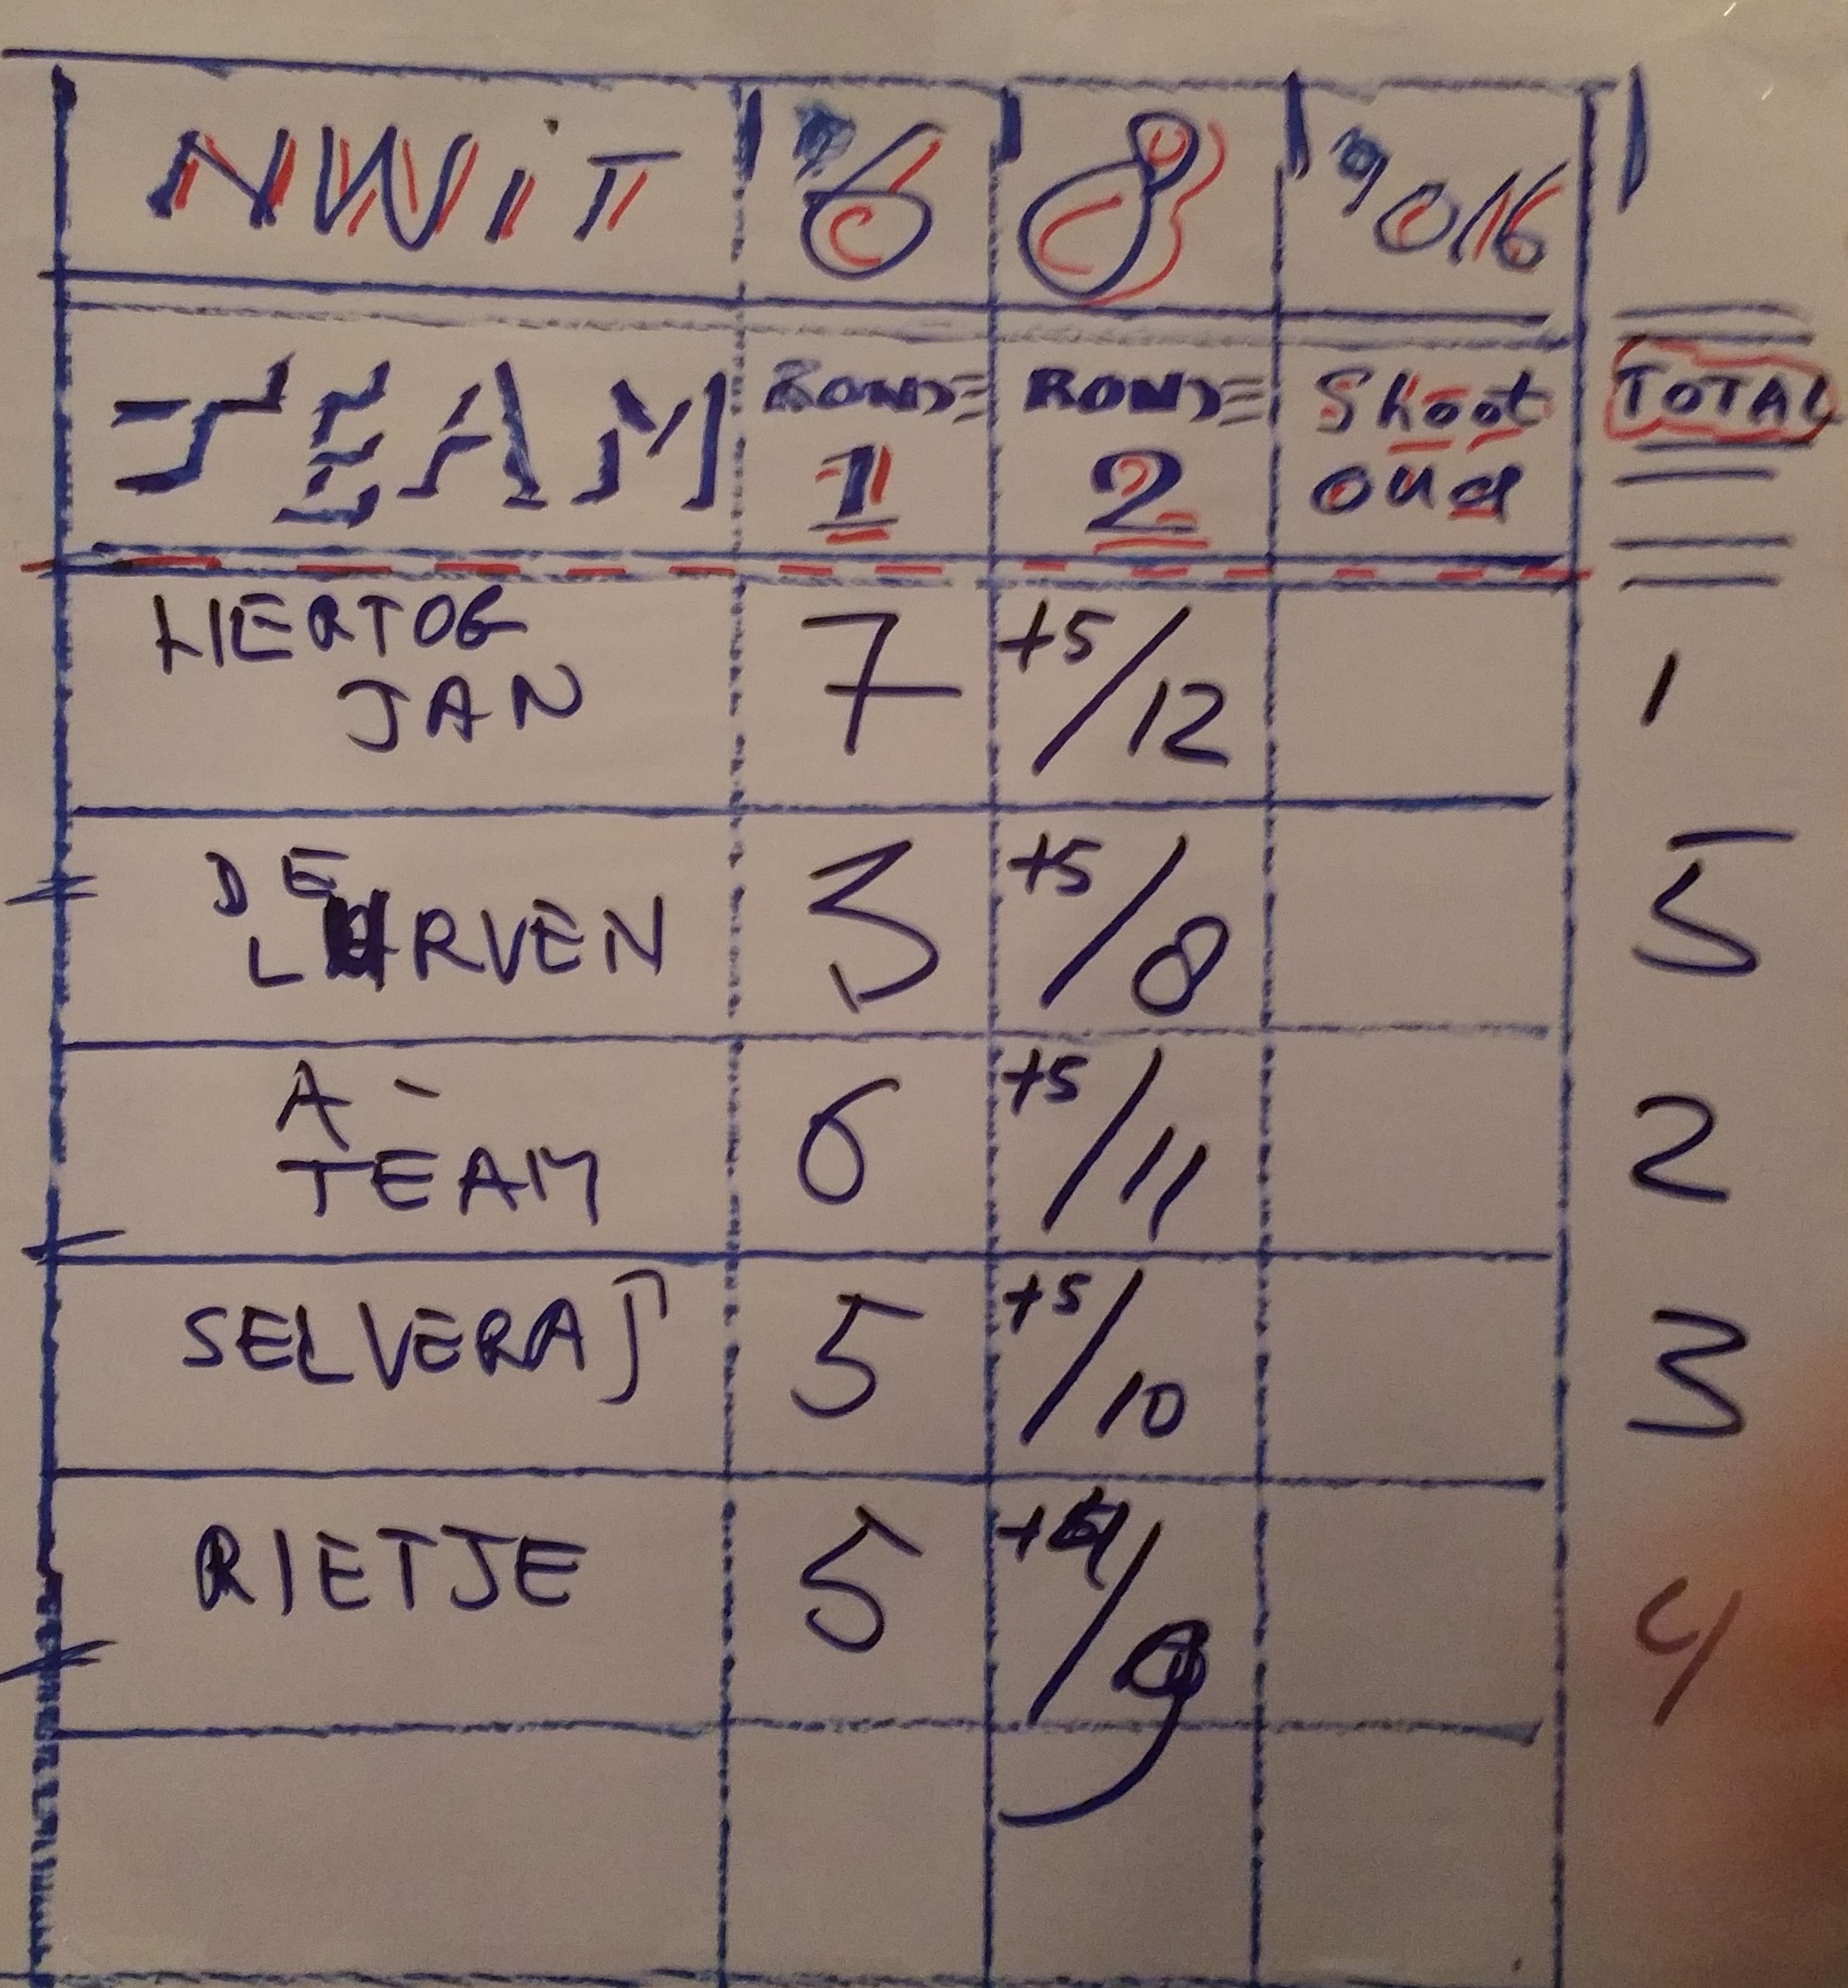 NWiT 6 8 2016
TEAM RONDE 1 RONDE 2 Shoot oud TOTAL
HERTOG JAN 7 +5/12 1
DE LARVEN 3 +5/8 5
A- TEAM 6 +5/11 2
SELVERAJ 5 +5/10 3
RIETJE 5 +4/9 4